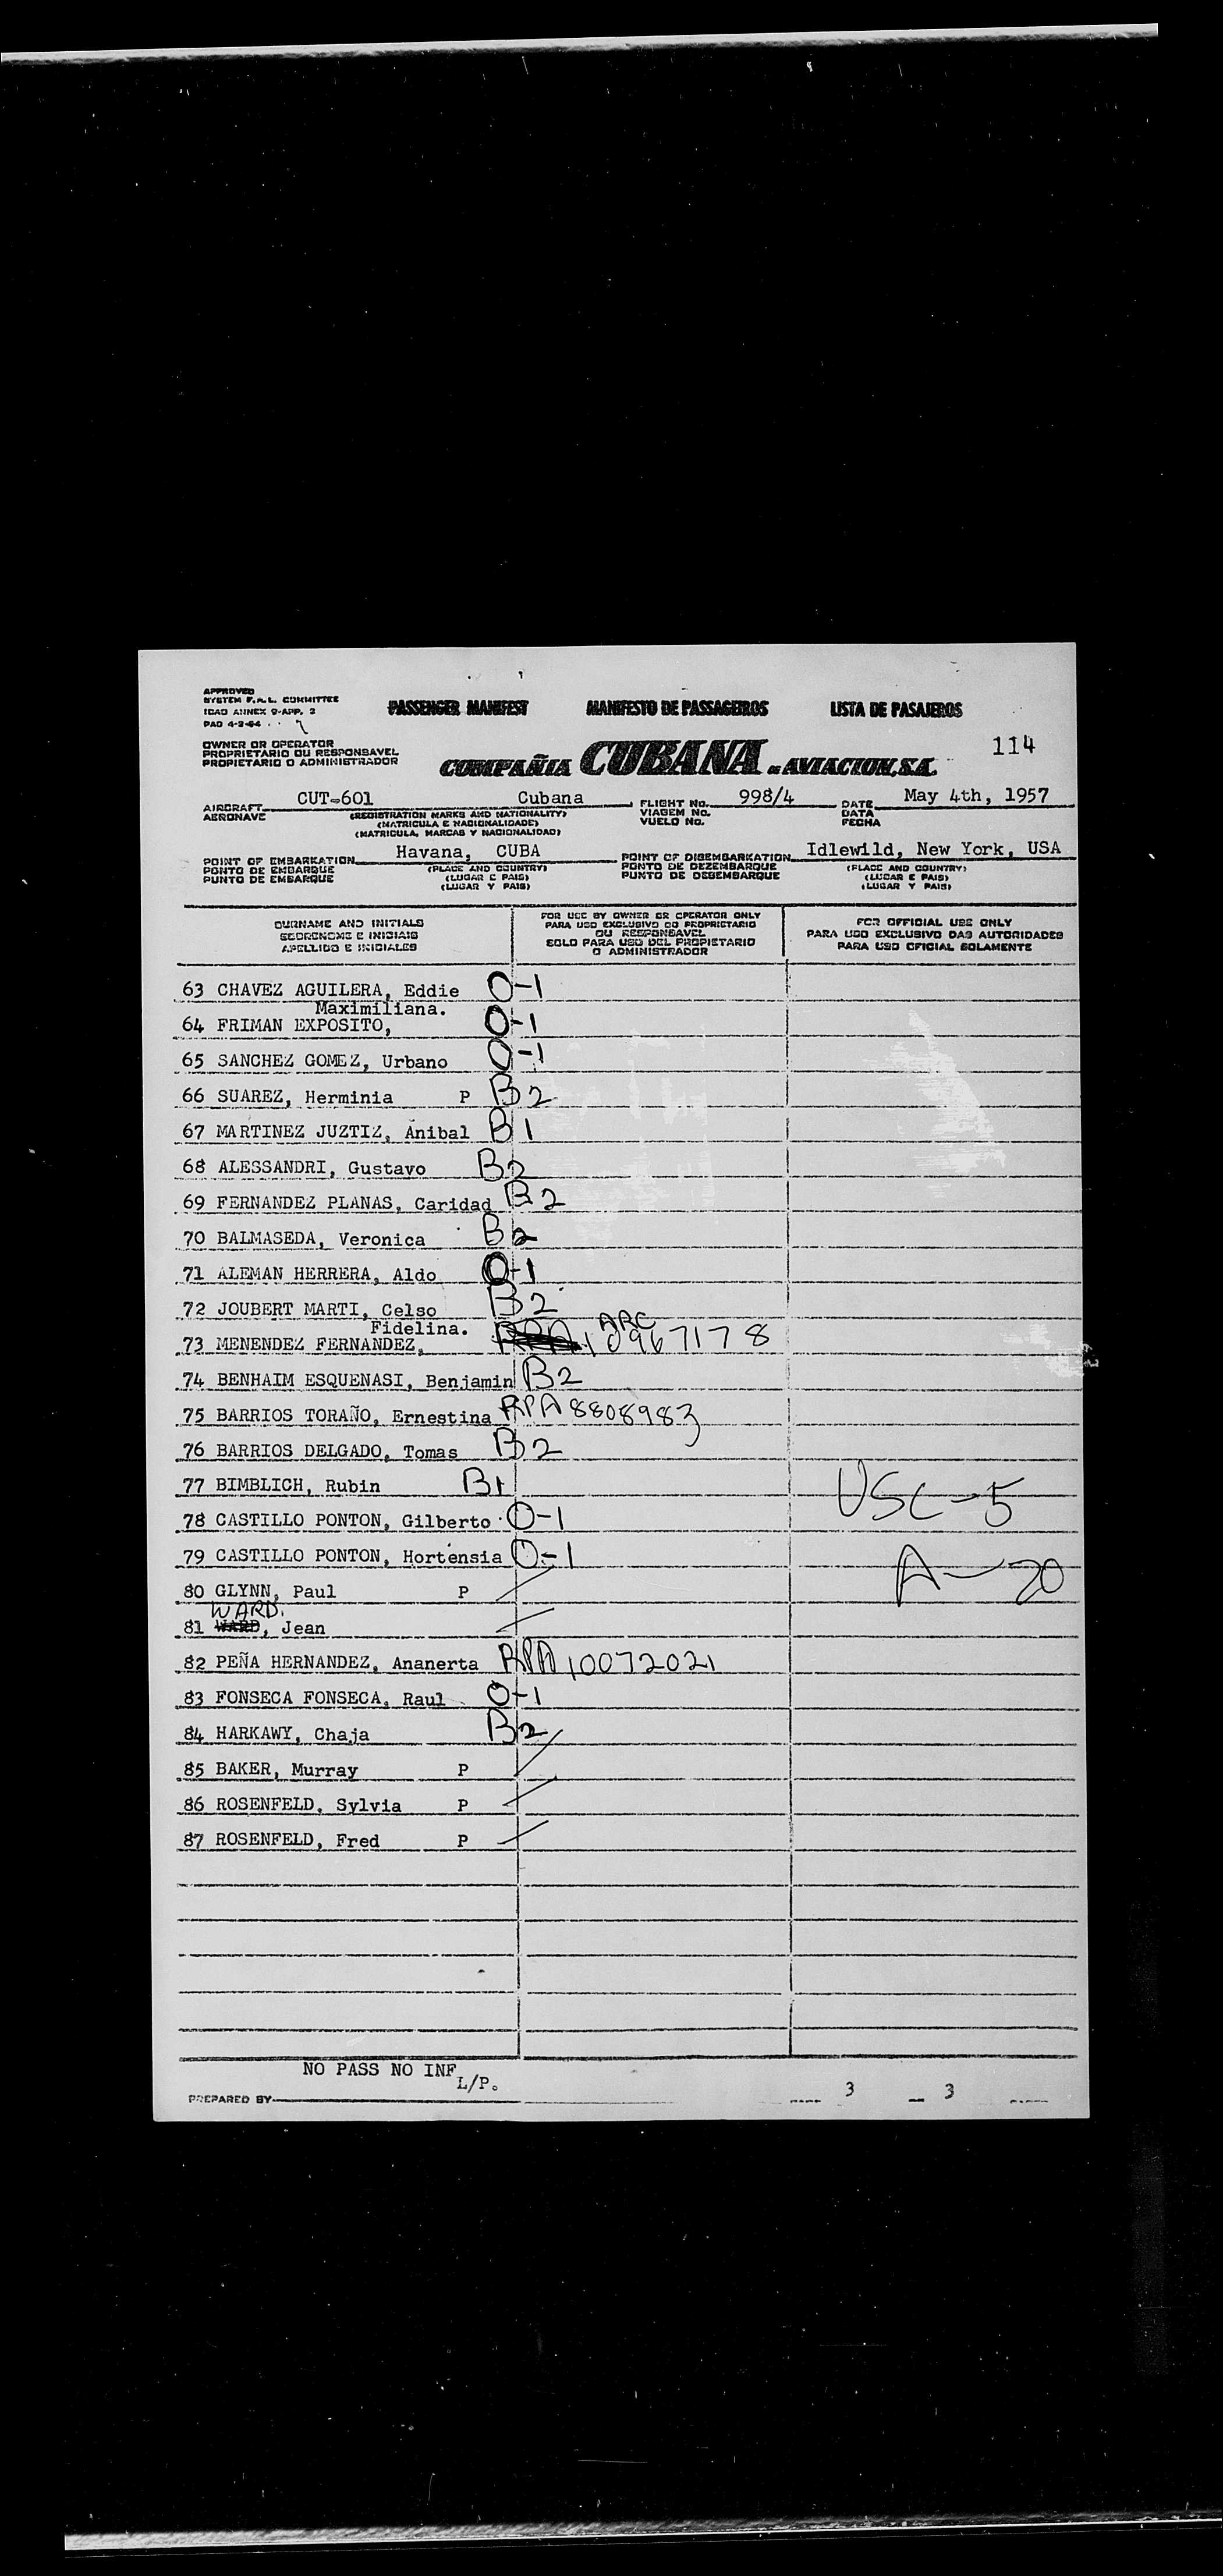 APPROVED
SYSTEM F.A.L. COMMITTEE
ICAO ANNEX 9-APP. 3
PAD 4-2-54
PASSENGER MANIFEST MANIFESTO DE PASSAGEIROS LISTA DE PASAJEROS
114
OWNER OR OPERATOR
PROPRIETARIO OU RESPONSAVEL
PROPIETARIO O ADMINISTRADOR
COMPAÑIA CUBANA DE AVIACION, S.A.
AIRCRAFT CUT-601 Cubana FLIGHT No. 998/4 DATE May 4th, 1957
AERONAVE (REGISTRATION MARKS AND NATIONALITY) VIAGEM No. DATA
(MATRICULA E NACIONALIDADE) VUELO No. FECHA
(MATRICULA, MARCAS Y NACIONALIDAD)
POINT OF EMBARKATION Havana, CUBA POINT OF DISEMBARKATION Idlewild, New York, USA
PONTO DE EMBARQUE (PLACE AND COUNTRY) PONTO DE DEZEMBARQUE (PLACE AND COUNTRY)
PUNTO DE EMBARQUE (LUGAR E PAIS) PUNTO DE DESEMBARQUE (LUGAR E PAIS)
(LUGAR Y PAIS) (LUGAR Y PAIS)
SURNAME AND INITIALS
SOBRENOME E INICIAIS
APELLIDO E INICIALES
FOR USE BY OWNER OR OPERATOR ONLY
PARA USO EXCLUSIVO DO PROPRIETARIO
OU RESPONSAVEL
SOLO PARA USO DEL PROPIETARIO
O ADMINISTRADOR
FOR OFFICIAL USE ONLY
PARA USO EXCLUSIVO DAS AUTORIDADES
PARA USO OFICIAL SOLAMENTE
63 CHAVEZ AGUILERA, Eddie O-1
Maximiliana.
64 FRIMAN EXPOSITO, O-1
65 SANCHEZ GOMEZ, Urbano O-1
66 SUAREZ, Herminia P B2
67 MARTINEZ JUZTIZ, Anibal B1
68 ALESSANDRI, Gustavo B2
69 FERNANDEZ PLANAS, Caridad B2
70 BALMASEDA, Veronica B2
71 ALEMAN HERRERA, Aldo O-1
72 JOUBERT MARTI, Celso B2
Fidelina. ARC
73 MENENDEZ FERNANDEZ, RPA 10967178
74 BENHAIM ESQUENASI, Benjamin B2
75 BARRIOS TORAÑO, Ernestina RPA 8808983
76 BARRIOS DELGADO, Tomas B2
77 BIMBLICH, Rubin B1 USC-5
78 CASTILLO PONTON, Gilberto O-1
79 CASTILLO PONTON, Hortensia O-1 A-20
80 GLYNN, Paul P
WARD.
81 WARD, Jean
82 PEÑA HERNANDEZ, Ananerta RPA 10072021
83 FONSECA FONSECA, Raul O-1
84 HARKAWY, Chaja B2
85 BAKER, Murray P
86 ROSENFELD, Sylvia P
87 ROSENFELD, Fred P
NO PASS NO INF
L/P.
PREPARED BY 3 3